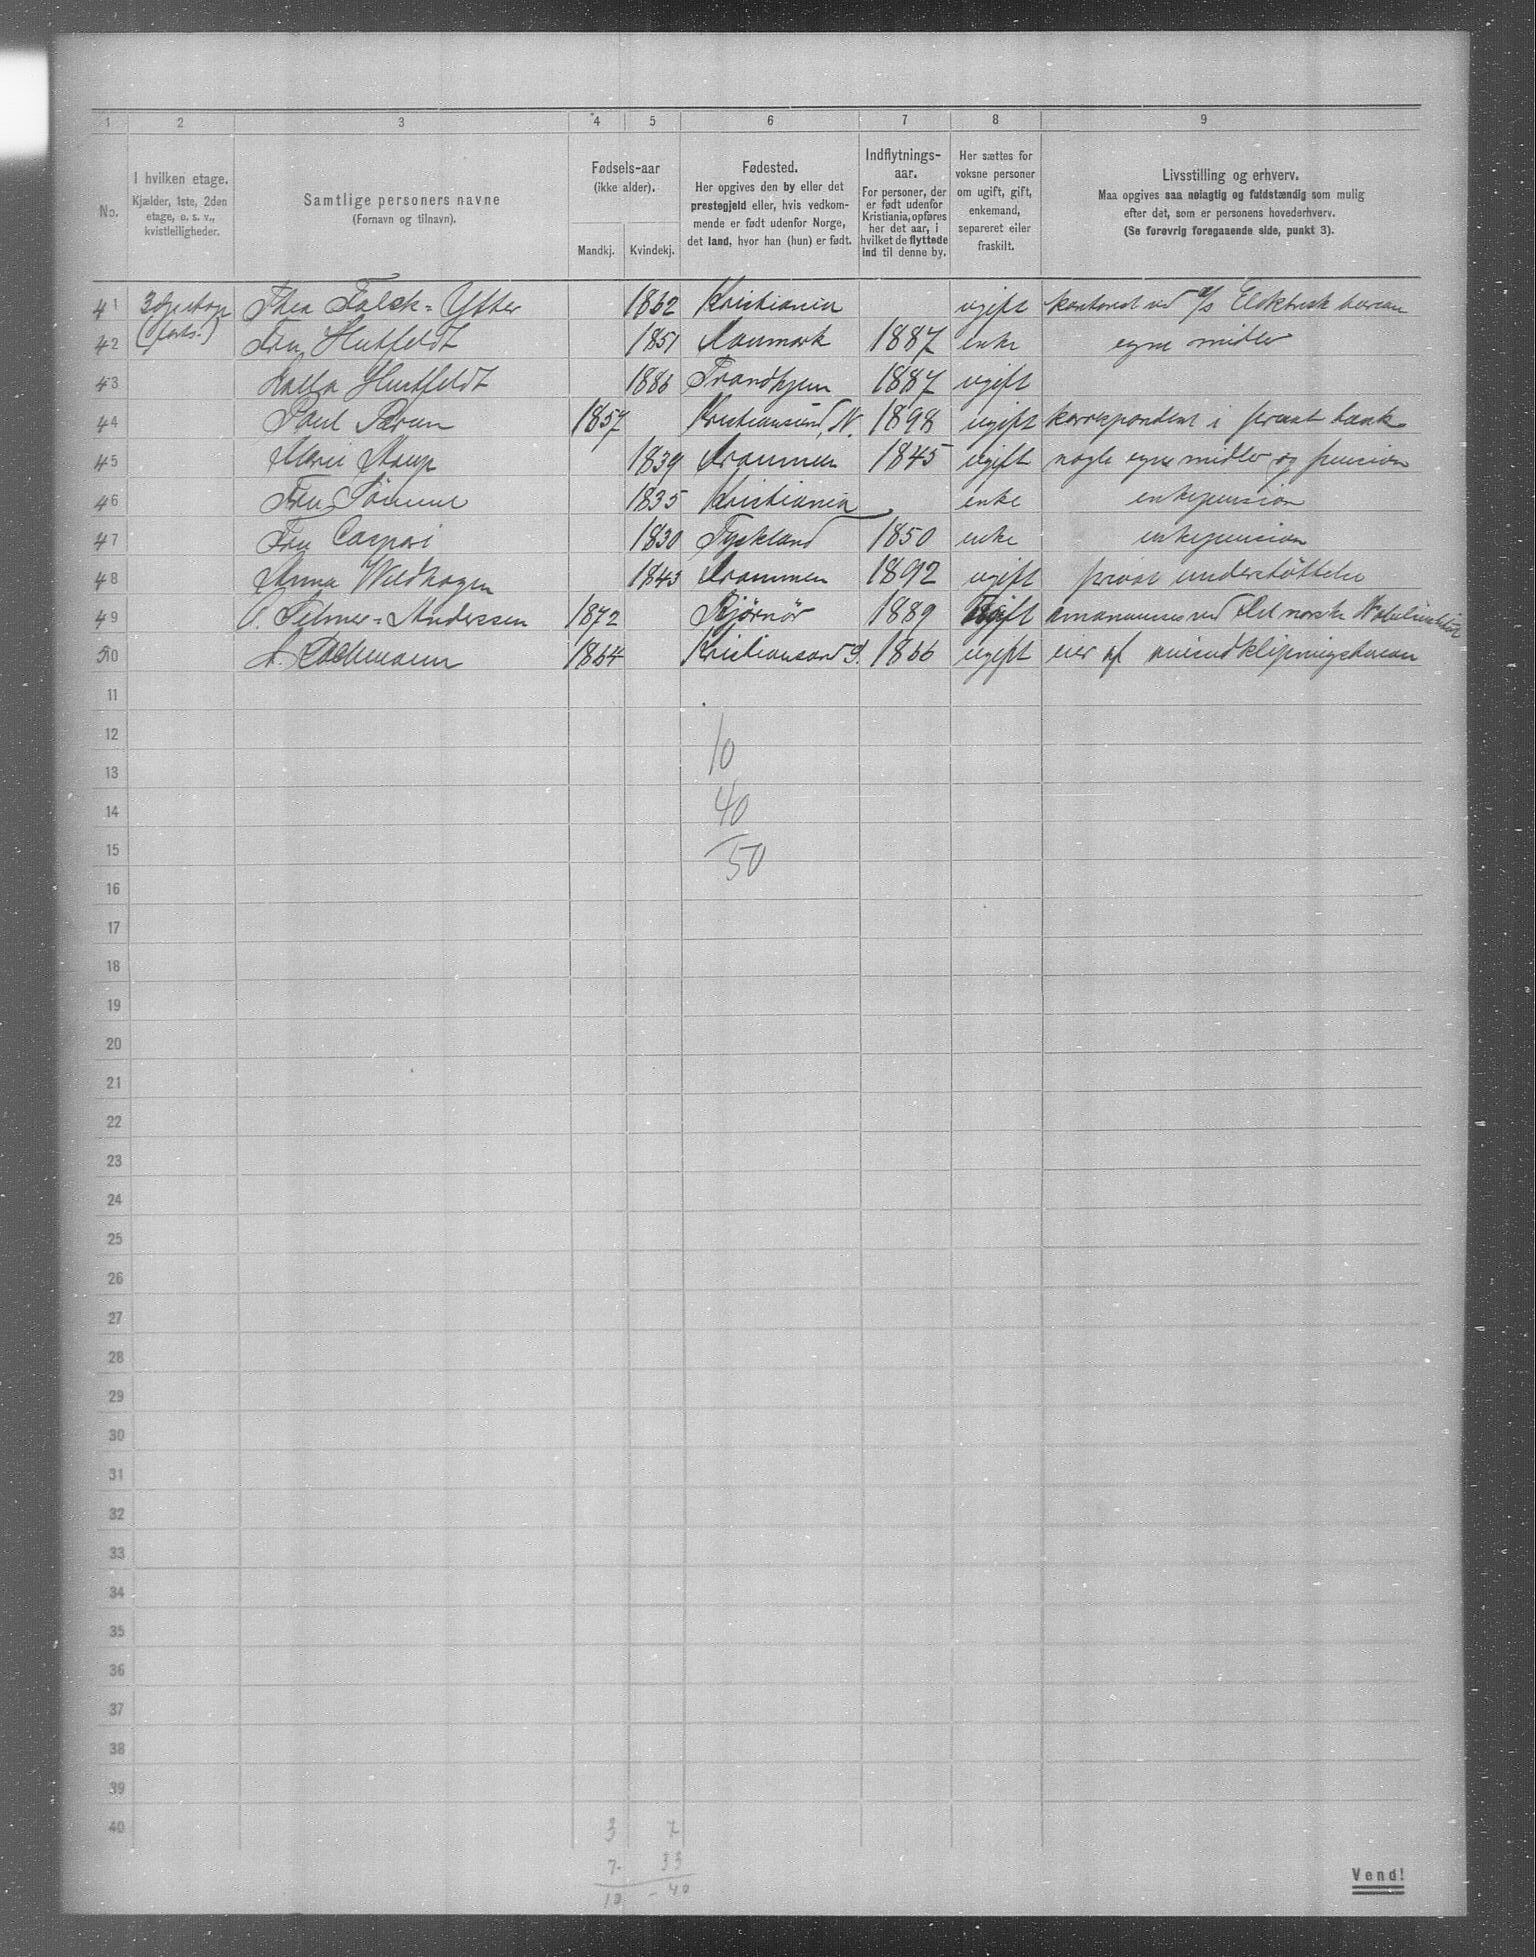 1 2 3 4 5 6 7 8 9
No.
I hvilken etage.
Kjælder, 1ste, 2den
etage, o. s. v.,
kvistleiligheder.
Samtlige personers navne
(Fornavn og tilnavn).
Fødsels-aar
(ikke alder).
Mandkj. Kvindekj.
Fødested.
Her opgives den by eller det
prestegjeld eller, hvis vedkom-
mende er født udenfor Norge,
det land, hvor han (hun) er født.
Indflytnings-
aar.
For personer, der
er født udenfor
Kristiania, opføres
her det aar, i
hvilket de flyttede
ind til denne by.
Her sættes for
voksne personer
om ugift, gift,
enkemand,
separeret eller
fraskilt.
Livsstilling og erhverv.
Maa opgives saa nøiagtig og fuldstændig som mulig
efter det, som er personens hovederhverv.
(Se forøvrig foregaaende side, punkt 3).
41 3dje etage Thea Falck-Ytter 1862 Kristiania ugift kontorist ved A/S Elektrisk bureau
42 (forts.) Fru Hutfeldt 1851 Danmark 1887 enke egne midler
43 Lalla Huitfeldt 1886 Trondhjem 1887 ugift
44 Paul 1857 Kristiansund N. 1898 ugift korrespondent i privat bank
45 Marie 1839 Drammen 1845 ugift nogle egne midler og pension
46 Fru Tømme 1835 Kristiania enke enkepension
47 Fru Caspari 1830 Tyskland 1850 enke enkepension
48 Anna Wildhagen 1843 Drammen 1892 ugift privat understøttelse
49 Selmer-Anderssen 1872 Bjørnør 1889 ugift amanuensis ved Det norske Nobelinstitut
50 A. 1864 Kristiansand S. 1866 ugift eier af avisudklipningsbureau
11
12
10
13
14
40
15
50
16
17
18
19
20
21
22
23
24
25
26
27
28
29
30
31
32
33
34
35
36
37
38
39
40
3 7
7 33
10 - 40
Vend!